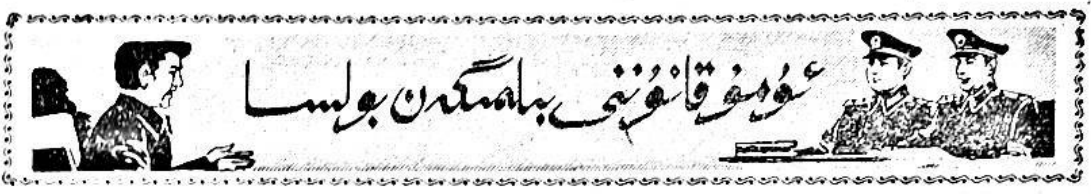 ئۇمۇ قانۇننى بىلمىگەن بولسا